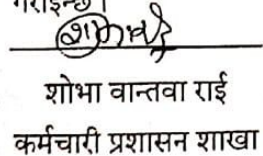 गराइन्छ।
शोभा वान्तवा राई
कर्मचारी प्रशासन शाखा